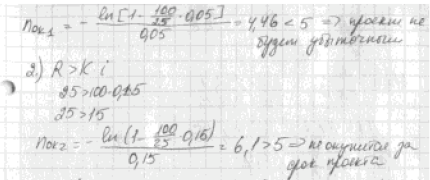 n ок₁ = - ln[1 - 100/25 · 0,05] / 0,05 = 4,46 < 5 => проект не
будет убыточным
2.) R > K i
25 > 100 · 0,15
25 > 15
n ок₂ = - ln(1 - 100/25 0,15) / 0,15 = 6,1 > 5 => не окупится за
срок проекта